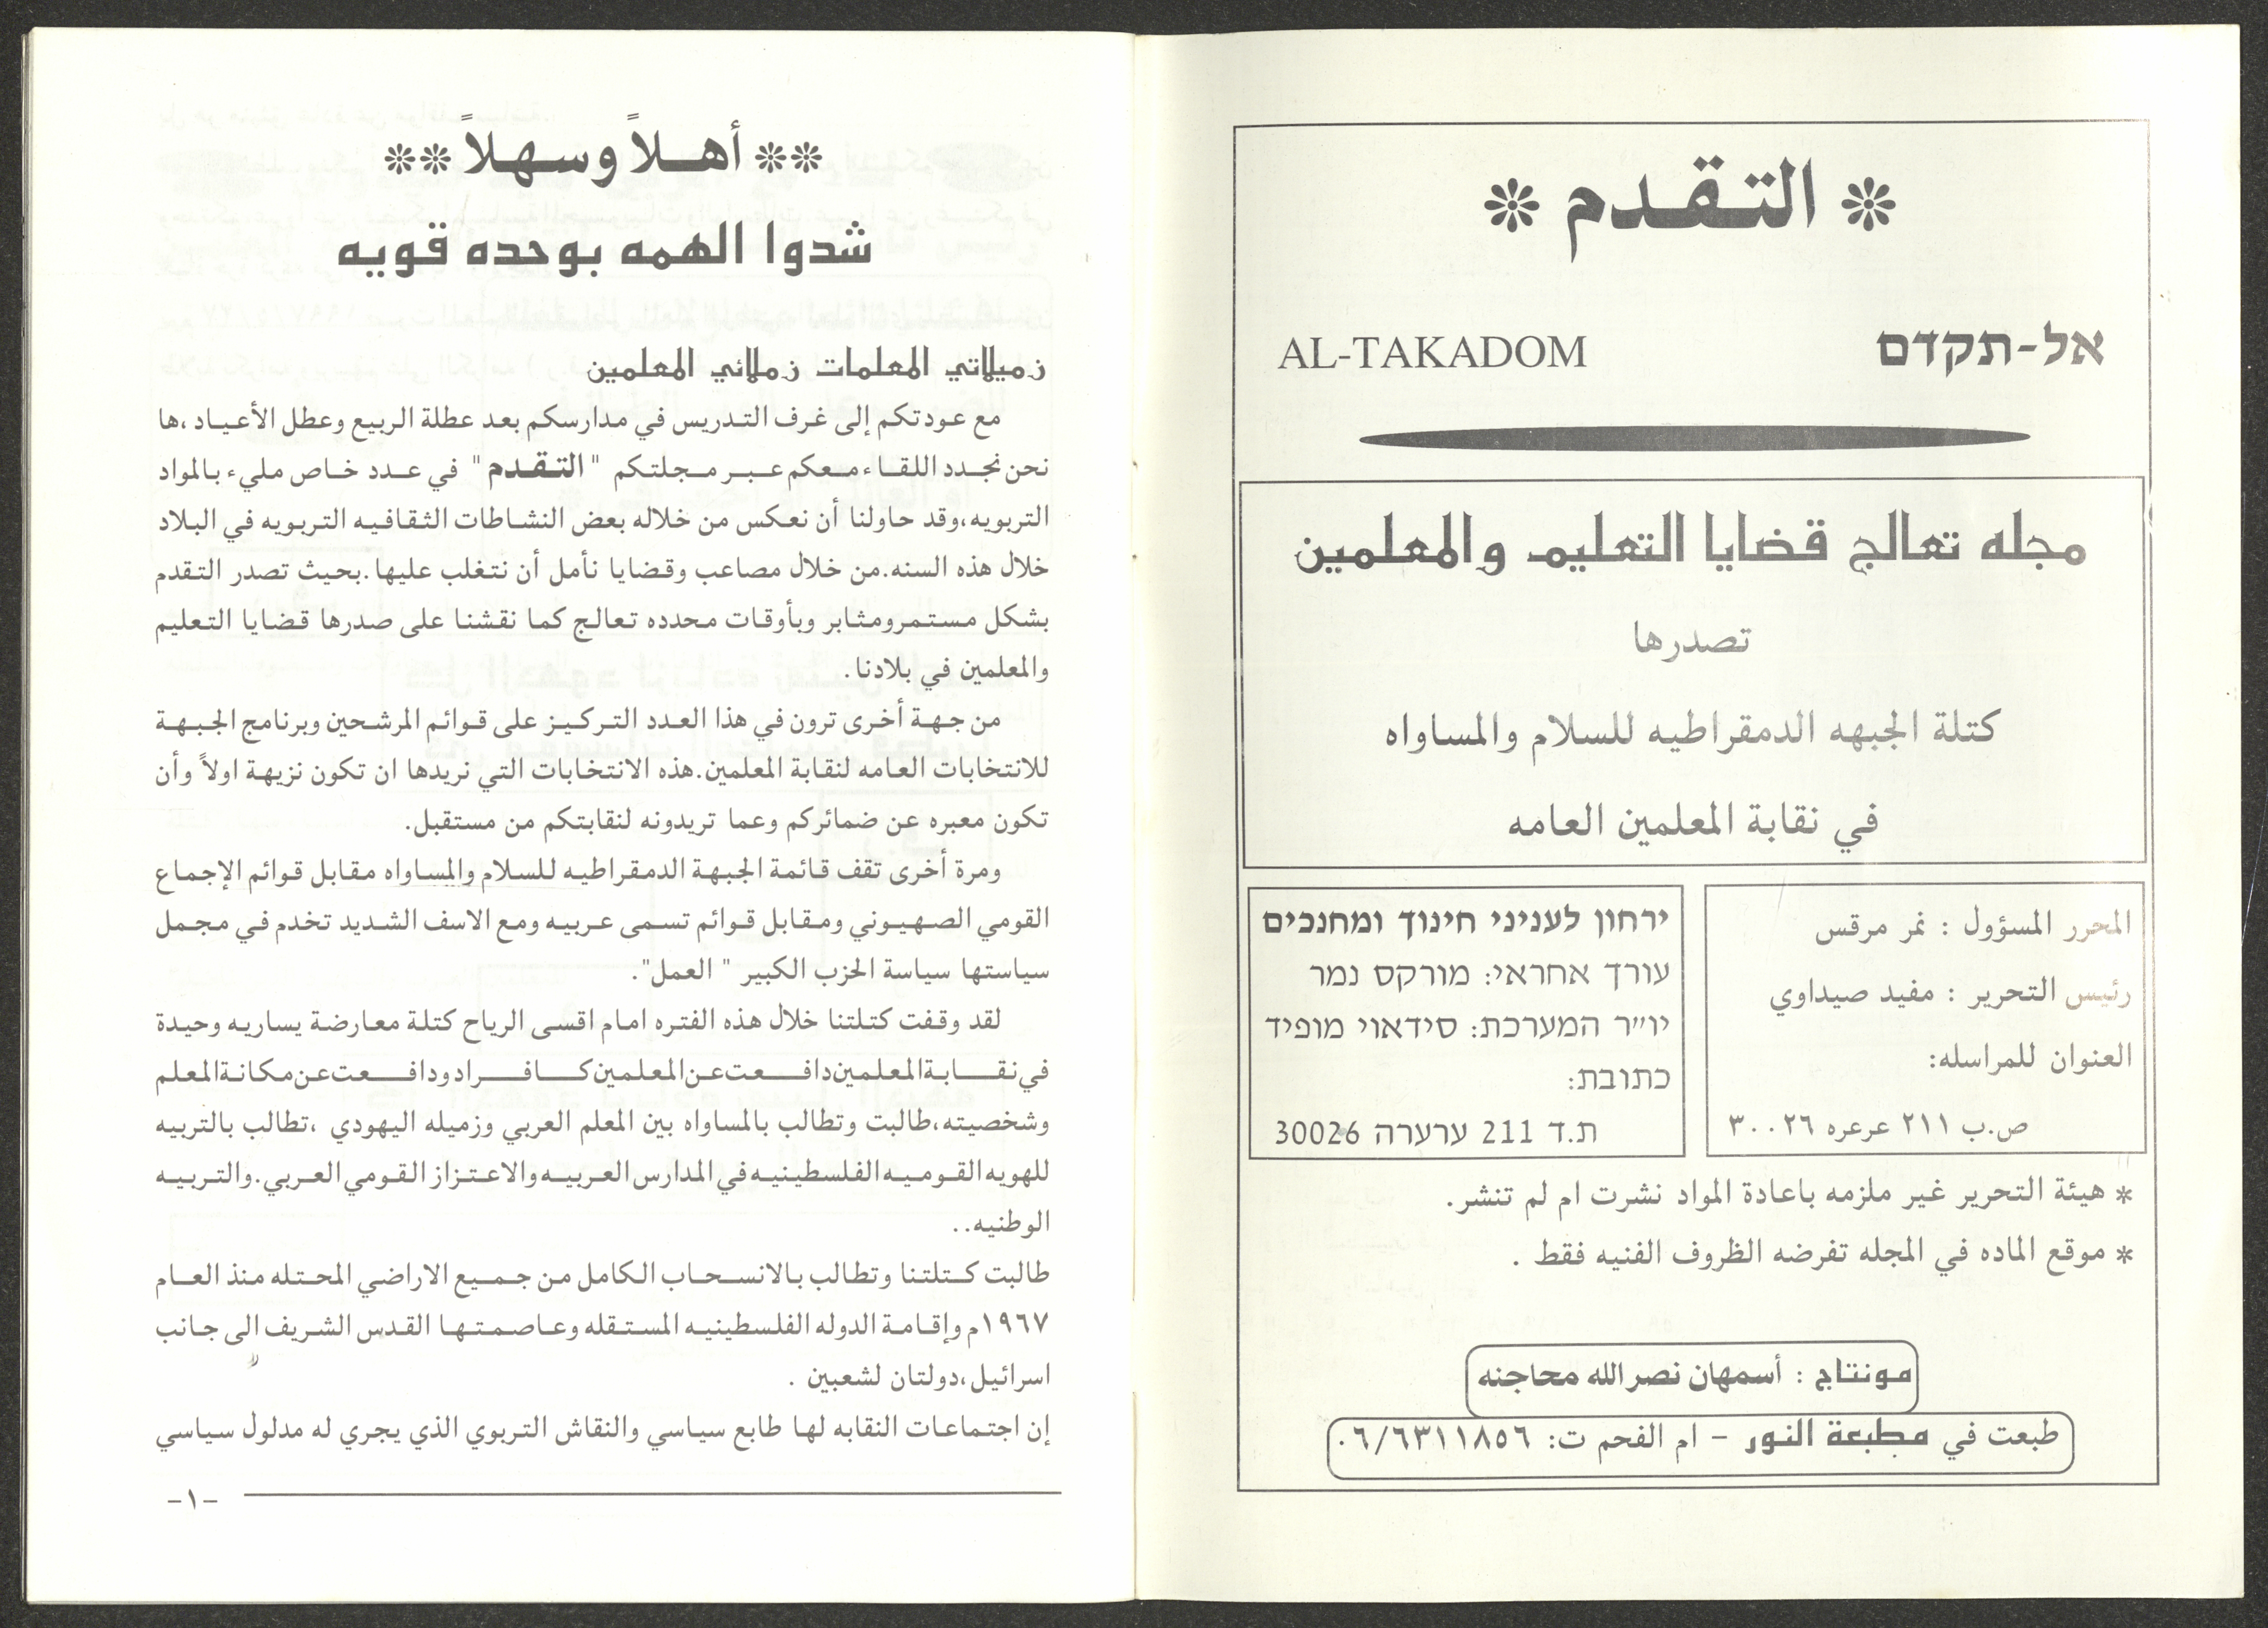 * التقدم *
AL-TAKADOM אל-תקדם
مجله تعالج قضايا التعليم والمعلمين
تصدرها
كتلة الجبهه الدمقراطيه للسلام والمساواه
في نقابة المعلمين العامه
المحرر المسؤول : نمر مرقس
رئيس التحرير : مفيد صيداوي
العنوان للمراسله:
ص.ب ٢١١ عرعره ٣٠٠٢٦
ירחון לעניני חינוך ומחנכים
עורך אחראי: מורקס נמר
יו״ר המערכת: סידאוי מופיד
כתובת:
ת.ד 211 ערערה 30026
* هيئة التحرير غير ملزمه باعادة المواد نشرت ام لم تنشر.
* موقع الماده في المجله تفرضه الظروف الفنيه فقط .
مونتاج : أسمهان نصرالله محاجنه
طبعت في مطبعة النور - ام الفحم ت: ٠٦/٦٣١١٨٥٦
** أهلاً وسهلاً **
شدوا الهمه بوحده قويه
زميلاتي المعلمات زملائي المعلمين
مع عودتكم إلى غرف التدريس في مدارسكم بعد عطلة الربيع وعطل الأعياد ،ها
نحن نجدد اللقاء معكم عبر مجلتكم "التقدم" في عدد خاص مليء بالمواد
التربويه،وقد حاولنا أن نعكس من خلاله بعض النشاطات الثقافيه التربويه في البلاد
خلال هذه السنه.من خلال مصاعب وقضايا نأمل أن نتغلب عليها.بحيث تصدر التقدم
بشكل مستمرومثابر وبأوقات محدده تعالج كما نقشنا على صدرها قضايا التعليم
والمعلمين في بلادنا.
من جهة أخرى ترون في هذا العدد التركيز على قوائم المرشحين وبرنامج الجبهة
للانتخابات العامه لنقابة المعلمين.هذه الانتخابات التي نريدها ان تكون نزيهة اولاً وأن
تكون معبره عن ضمائركم وعما تريدونه لنقابتكم من مستقبل.
ومرة أخرى تقف قائمة الجبهة الدمقراطيه للسلام والمساواه مقابل قوائم الإجماع
القومي الصهيوني ومقابل قوائم تسمى عربيه ومع الاسف الشديد تخدم في مجمل
سياستها سياسة الحزب الكبير " العمل".
لقد وقفت كتلتنا خلال هذه الفتره امام اقسى الرياح كتلة معارضة يساريه وحيدة
في نقابة المعلمين دافعت عن المعلمين كافراد ودافعت عن مكانة المعلم
وشخصيته،طالبت وتطالب بالمساواه بين المعلم العربي وزميله اليهودي ،تطالب بالتربيه
للهويه القوميه الفلسطينيه في المدارس العربيه والاعتزاز القومي العربي.والتربيه
الوطنيه..
طالبت كتلتنا وتطالب بالانسحاب الكامل من جميع الاراضي المحتله منذ العام
١٩٦٧م وإقامة الدوله الفلسطينيه المستقله وعاصمتها القدس الشريف الى جانب
اسرائيل،دولتان لشعبين .
إن اجتماعات النقابه لها طابع سياسي والنقاش التربوي الذي يجري له مدلول سياسي
-١-